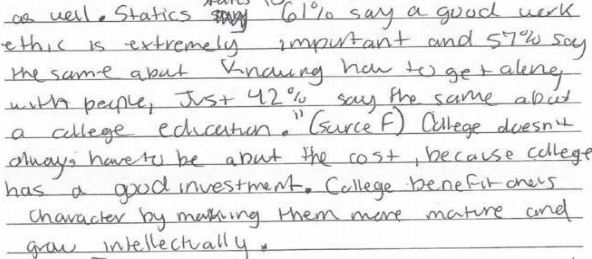 as well. Statics 61% say a good work
ethic is extremely important and 57% say
the same about Knowing how to get along
with people, Just 42% say the same about
a college education." (Source F) College doesn't
always have to be about the cost, because college
has a good investment. College benefit one's
character by making them more mature and
grow intellectually.